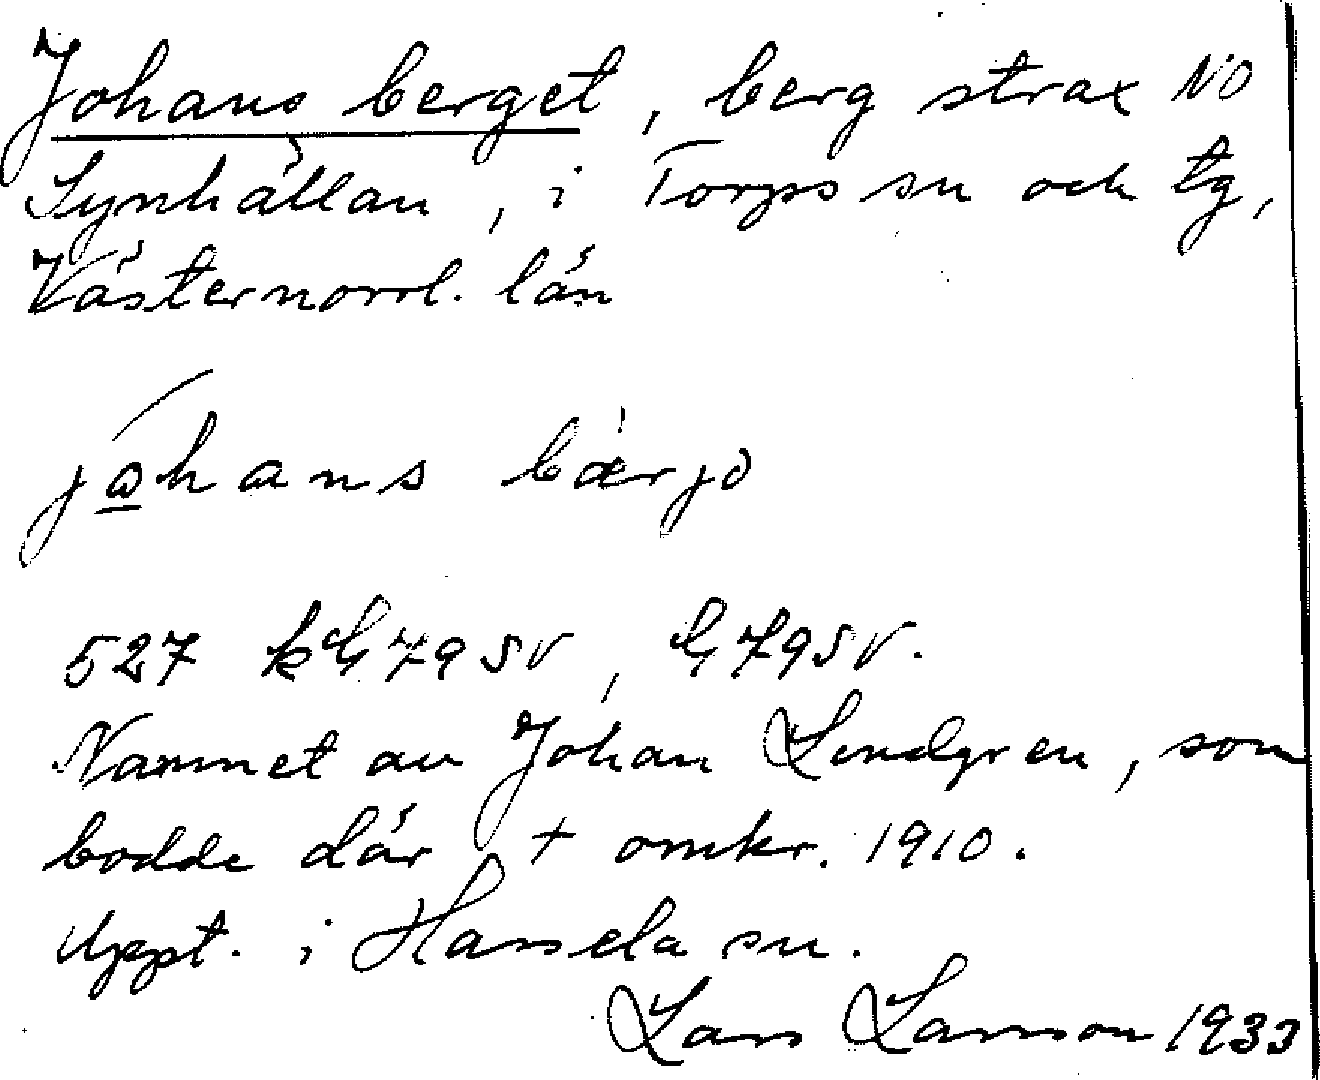 Johans berget, berg strax NO
Synhällan, i Torps sn och tg,
Västernorrl. län
jåhans bærjə
527 kG79SV, G79SV.
Namnet av Johan Lindgren, som
bodde där + omkr. 1910.
Uppt. i Hassela sn.
Lars Larsson 1933